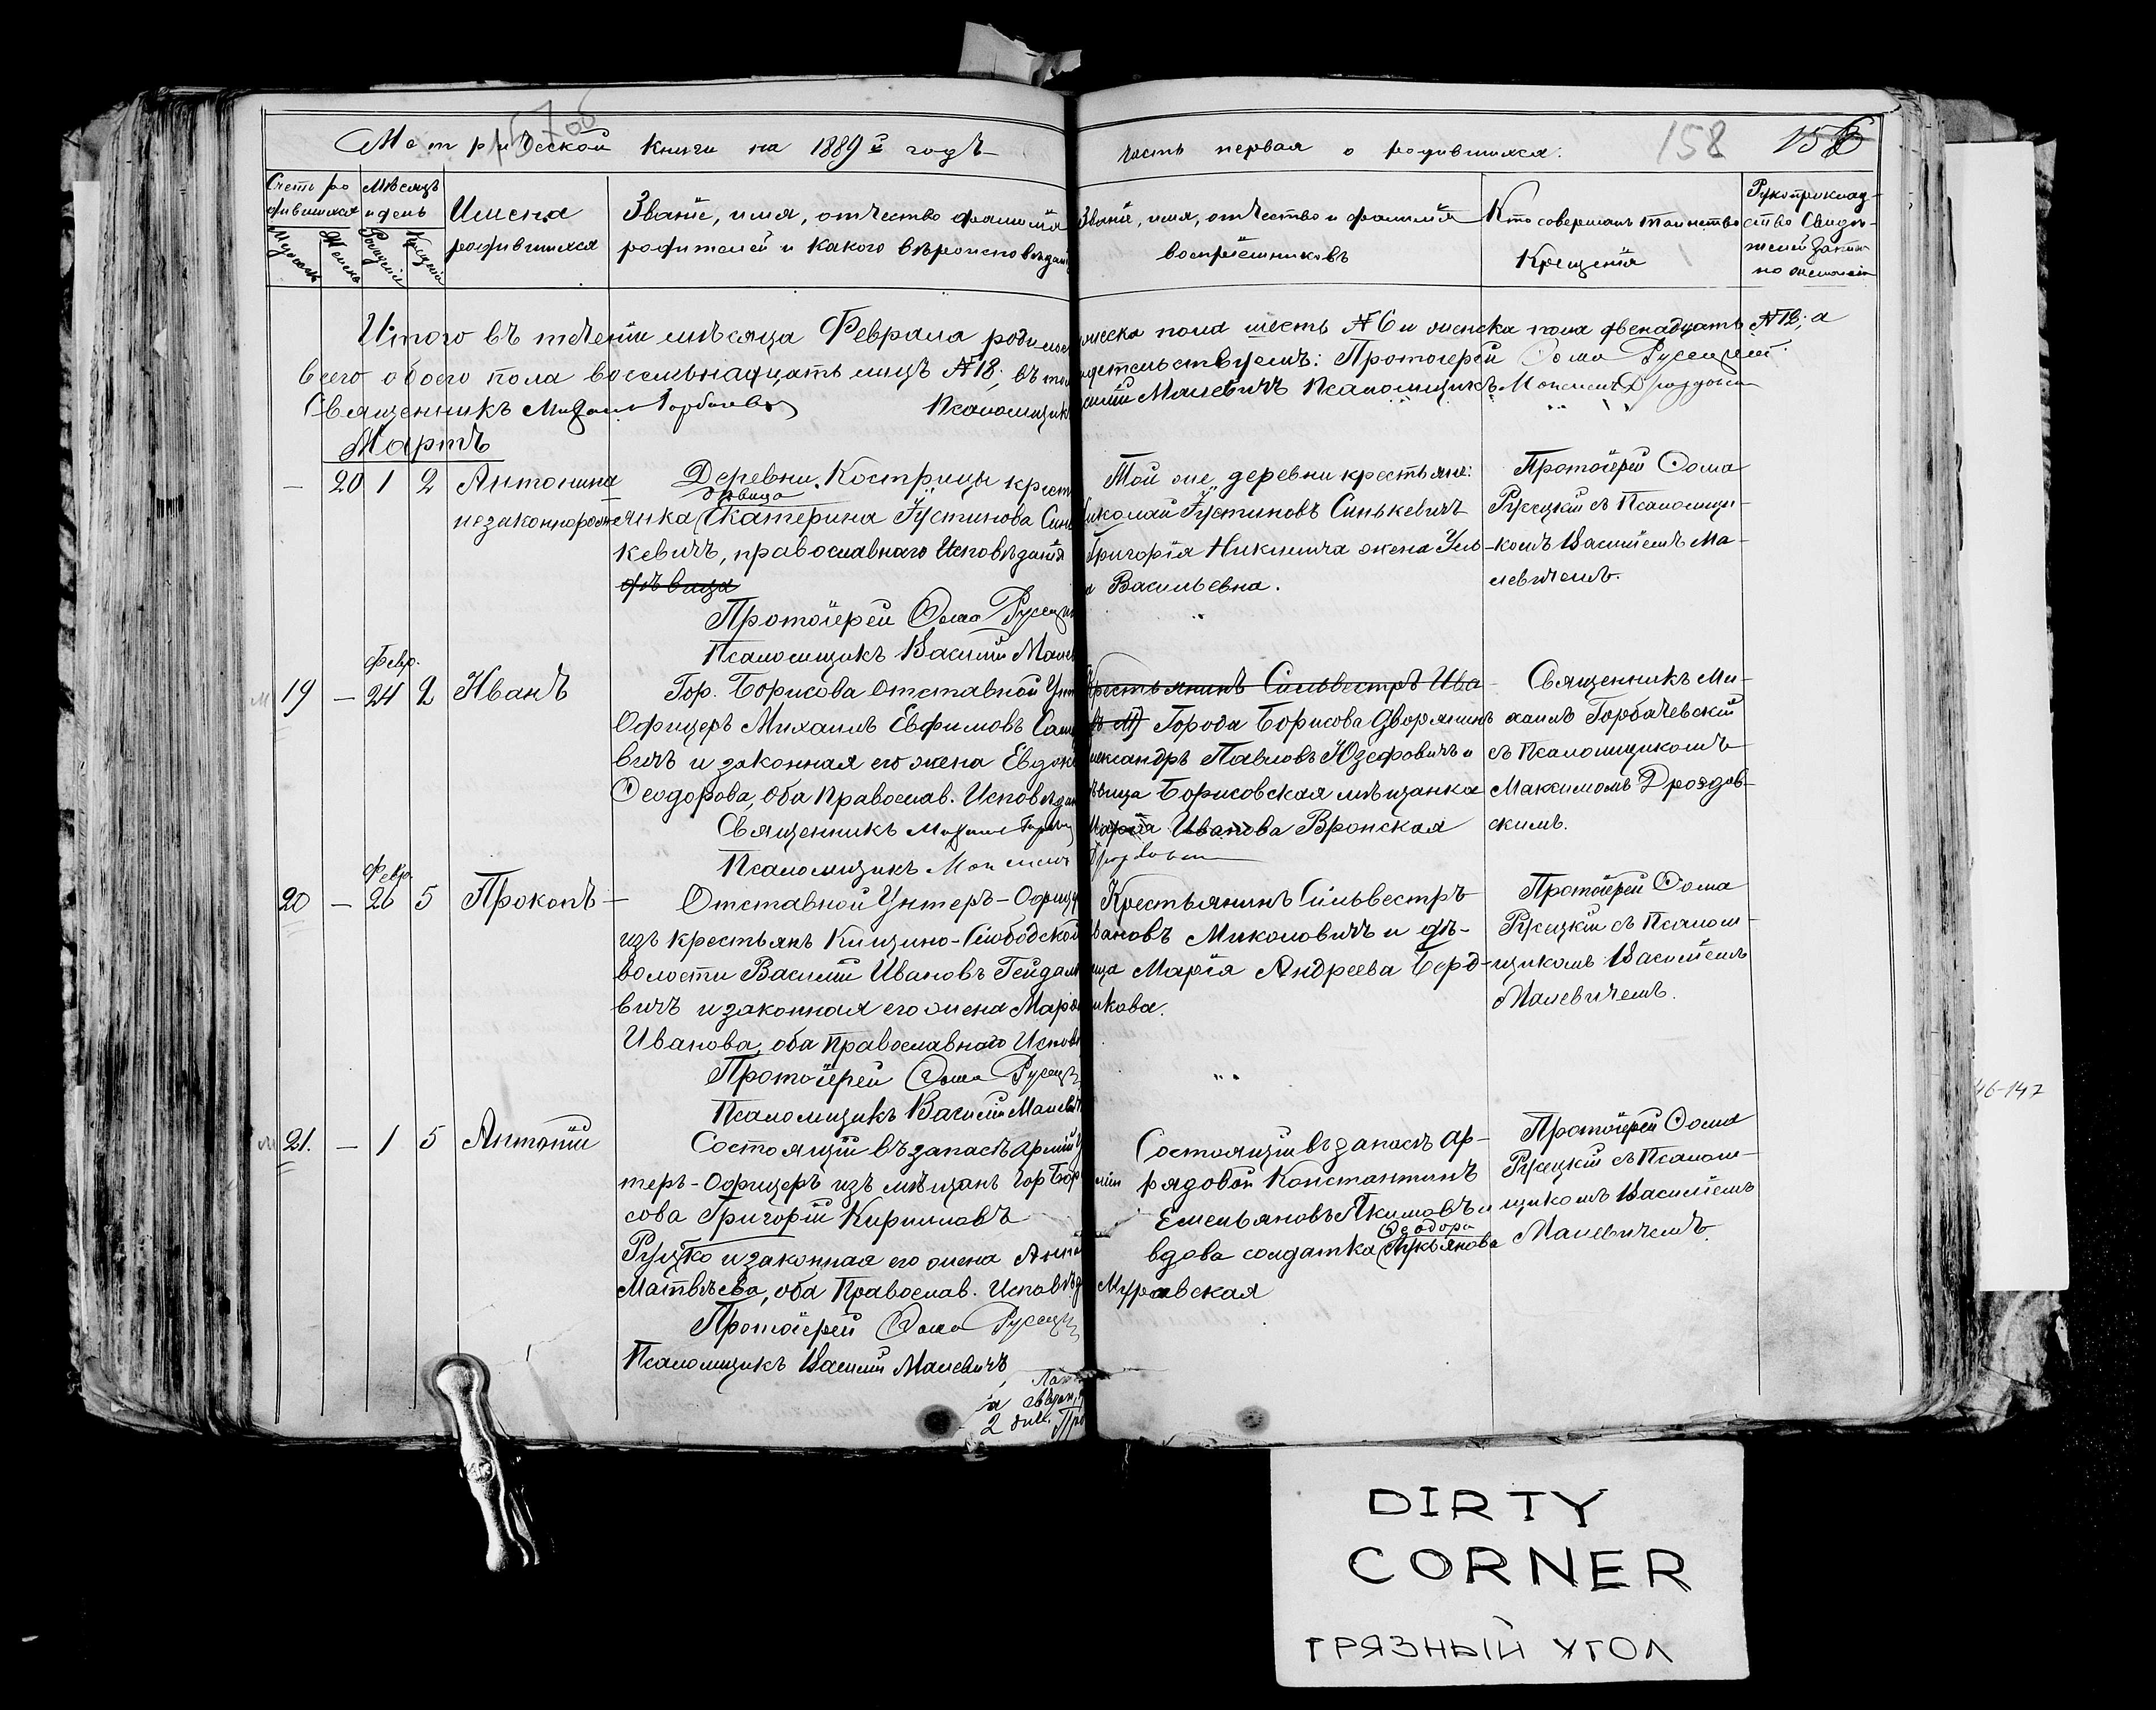 Метрической книги на 1889й годъ
часть первая о родившихся.
158
Счетъ ро
дившихся
Мѣсяцъ
и день
Имена
родившихся
Званіе, имя, отчество фамилія
родителей и какого вѣроисповѣдан
Званіе, имя, отчество и фамилія
воспріемниковъ
Кто совершалъ таинство
Крещенія
Рукоприклад-
ство Свидѣ-
телей
Итого въ теченіи мѣсяца Февраля родилос
мужска пола шесть №6 и женска пола двенадцать №12, а
всего обоего пола восемьнадцать лицъ №18; въ том
детельствуемъ: Протоіерей Фома Русецкій
Священникъ Михаилъ Горбачевскій Псаломщикъ
Малевичъ Псаломщикъ
Мартъ
— 20 1 2 Антонина
незаконнорож-
Деревни Кострицы крест
дѣвица
янка Екатерина Іустинова Синь
кевичъ, православнаго Исповѣданія
дѣвица
Протоіерей Фома Русецк
Псаломщикъ Василій Малев
Той же деревни крестьяне:
Николай Іустиновъ Синькевичъ
Григорія Никитича жена Уль-
Васильевна.
Протоіерей Фома
Русецкій съ Псаломщи-
комъ Василіемъ Ма-
левичемъ.
Февр.
19 — 24 2 Иванъ
Гор. Борисова Отставной Унт
Офицеръ Михаилъ Евфимовъ Саш
вичъ и законная его жена Евдок
Феодорова, Оба Православ. Исповѣдан
Священникъ Михаилъ
Псаломщикъ
Крестьянинъ Сильвестръ Ива-
Города Борисова Дворянинъ
лександръ Павловъ Юзефовичъ и
дѣвица Борисовская мѣщанка
Марія Иванова Вронская
Священникъ Ми-
хаилъ Горбачевскій
съ Псаломщикомъ
Максимомъ Дроздов-
скимъ.
Февр.
20 — 26 5 Прокопъ
Отставной Унтеръ-Офице
изъ крестьянъ Кищино-Слободской
волости Василій Ивановъ Гайдам
вичъ и законная его жена Марѳ
Иванова, оба Православнаго Испов
Протоіерей Фома Русецк
Псаломщикъ Василій Малеви
Крестьянинъ Сильвестръ
Ивановъ Миколовичъ и дѣ-
ица Марія Андреева Берд-
никова.
Протоіерей Фома
Русецкій съ Псалом-
щикомъ Василіемъ
Малевичемъ.
21. — 1 5 Антоній
Состоящій въ запасѣ арміи У
теръ-Офицеръ изъ мѣщанъ гор Бор
сова Григорій Кирилловъ
Руцко и законная его жена Анна
Матвѣева, оба Православ. Исповѣд
Протоіерей Фома Русецк
Псаломщикъ Василій Малевичъ
Состоящій въ запасѣ ар-
міи рядовой Константинъ
Емельяновъ Якимовъ и
Феодора
вдова солдатка Лукьянова
Муравская
Протоіерей Фома
Русецкій съ Псалом-
щикомъ Василіемъ
Малевичемъ.
46-147
DIRTY
CORNER
ГРЯЗНЫЙ УГОЛ